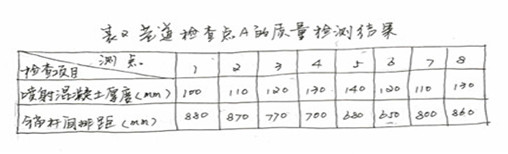 表2 巷道检查点A的质量检测结果
测点
检查项目 1 2 3 4 5 6 7 8
喷射混凝土厚度(mm) 100 110 120 130 140 120 110 130
锚杆间排距(mm) 880 870 770 700 680 650 800 860